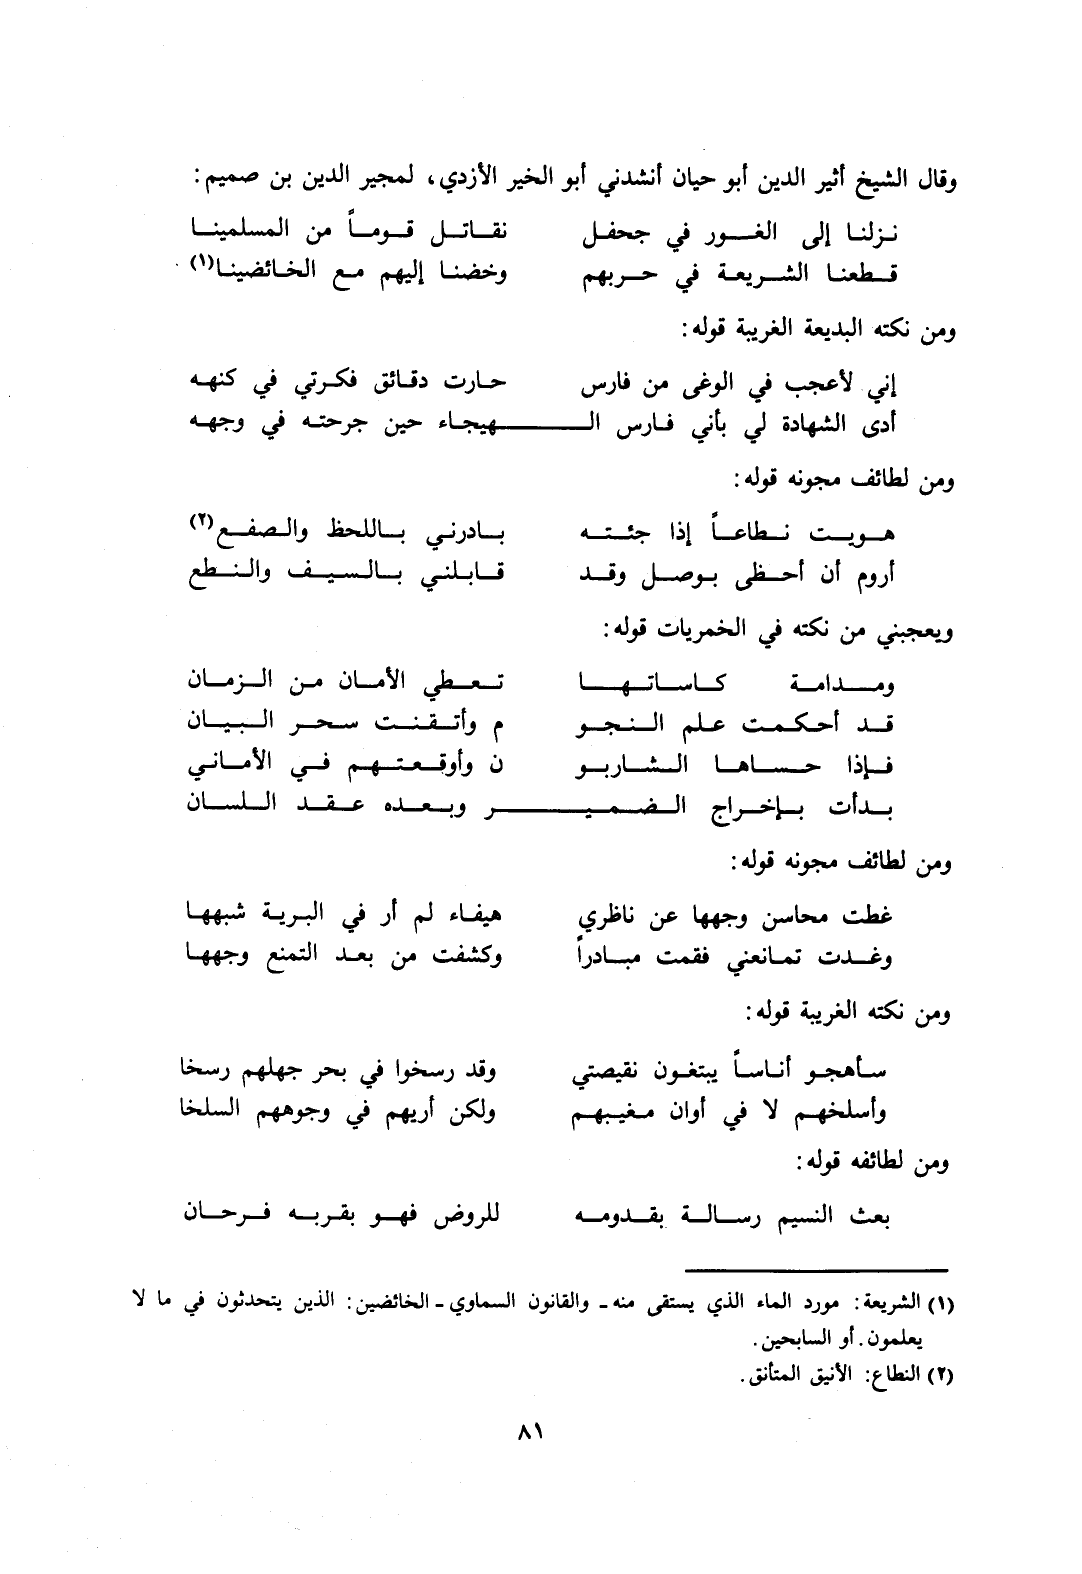 وقال الشيخ أثير الدين أبو حيان أنشدني أبو الخير الأزدي، لمجير الدين بن صميم:
نزلنا إلى الغور في جحفل نقاتل قوماً من المسلمينا
قطعنا الشريعة في حربهم وخضنا إليهم مع الخائضينا(١)
ومن نكته البديعة الغريبة قوله:
إني لأعجب في الوغى من فارس حارت دقائق فكرتي في كنهه
أدى الشهادة لي بأني فارس الـهيجاء حين جرحته في وجهه
ومن لطائف مجونه قوله:
هويت نطاعاً إذا جئته بادرني باللحظ والصفع(٢)
أروم أن أحظى بوصل وقد قابلني بالسيف والنطع
ويعجبني من نكته في الخمريات قوله:
ومدامة كاساتها تعطي الأمان من الزمان
قد أحكمت علم النجو م وأتقنت سحر البيان
فإذا حساها الشاربو ن وأوقعتهم في الأماني
بدأت بإخراج الضميـر وبعده عقد اللسان
ومن لطائف مجونه قوله:
غطت محاسن وجهها عن ناظري هيفاء لم أر في البرية شبهها
وغدت تمانعني فقمت مبادراً وكشفت من بعد التمنع وجهها
ومن نكته الغريبة قوله:
سأهجو أناساً يبتغون نقيصتي وقد رسخوا في بحر جهلهم رسخا
وأسلخهم لا في أوان مغيبهم ولكن أريهم في وجوههم السلخا
ومن لطائفه قوله:
بعث النسيم رسالة بقدومه للروض فهو بقربه فرحان
(١) الشريعة: مورد الماء الذي يستقى منه - والقانون السماوي - الخائضين: الذين يتحدثون في ما لا
يعلمون. أو السابحين.
(٢) النطاع: الأنيق المتأنق.
٨١